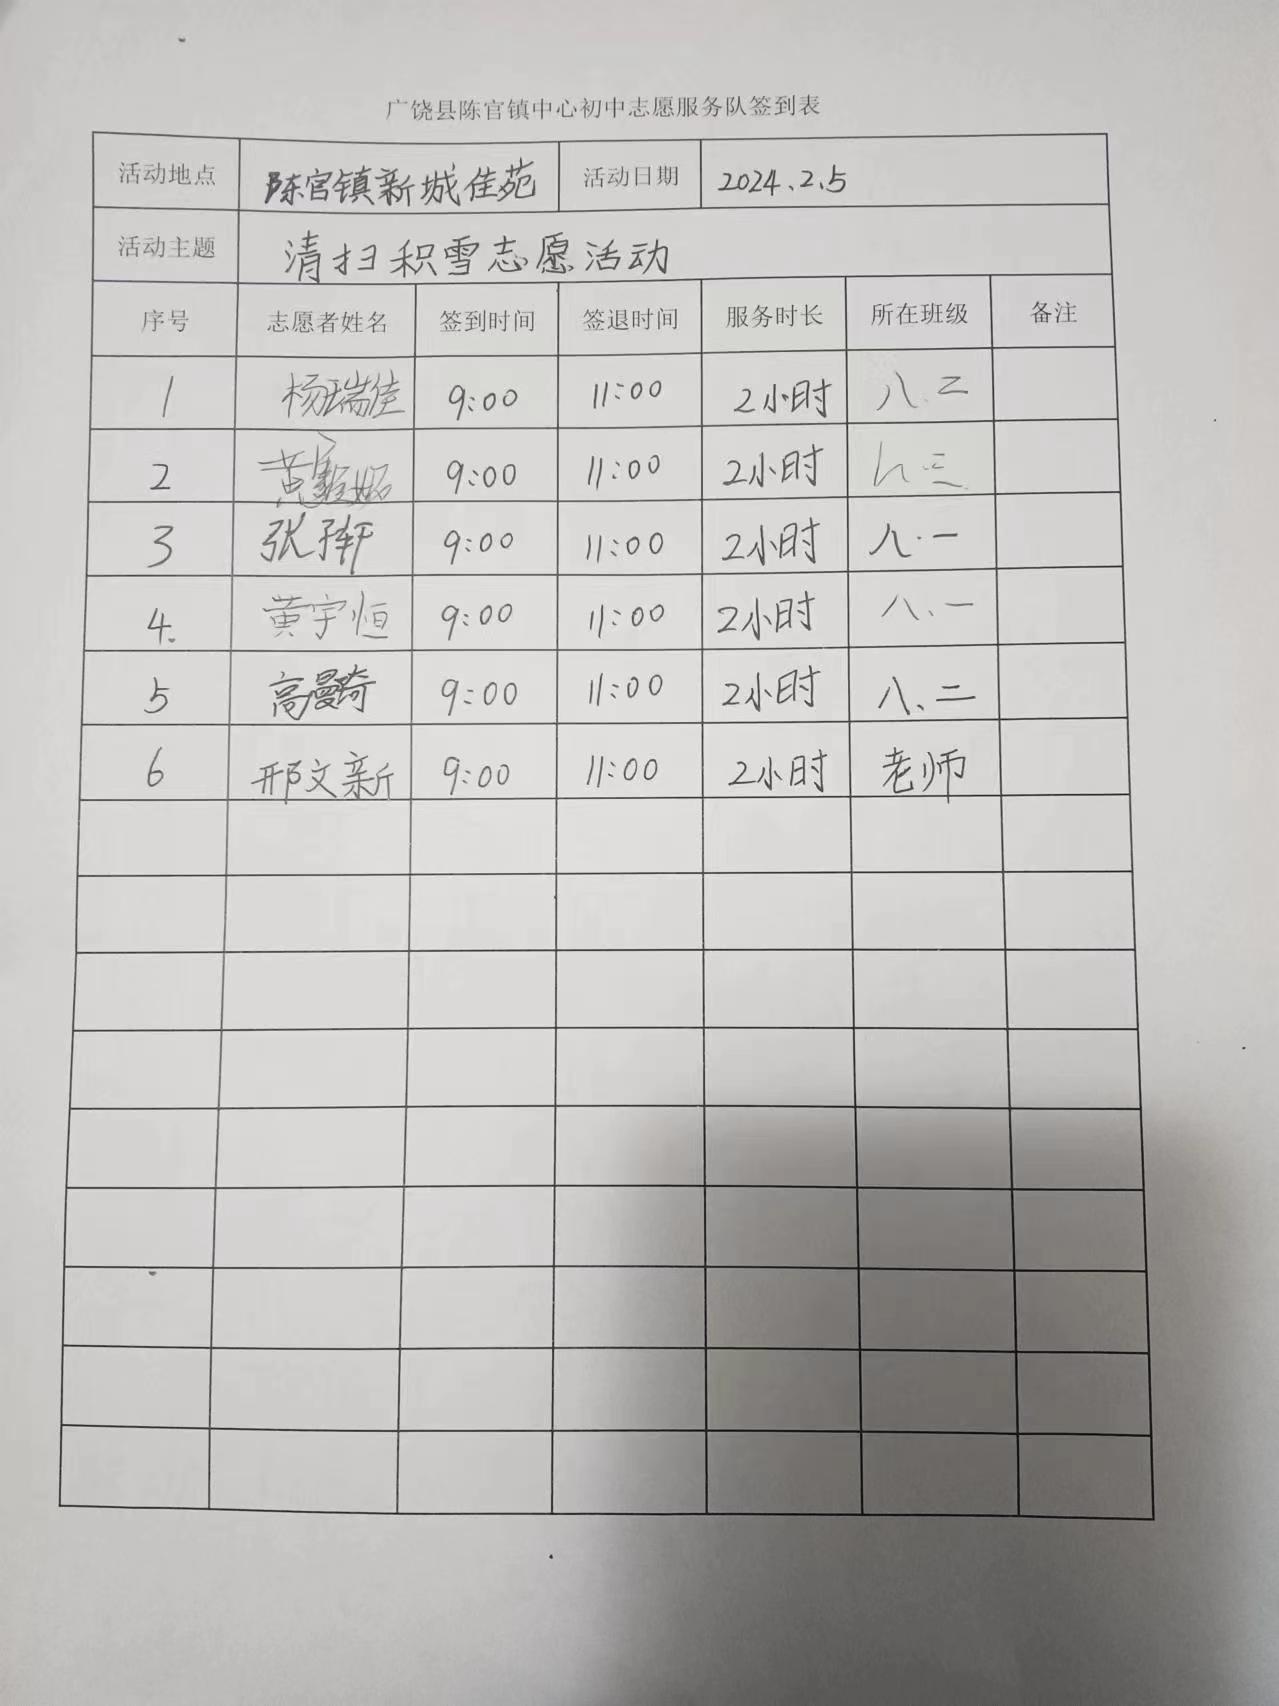 广饶县陈官镇中心初中志愿服务队签到表
活动地点 陈官镇新城佳苑 活动日期 2024.2.5
活动主题 清扫积雪志愿活动
序号 志愿者姓名 签到时间 签退时间 服务时长 所在班级 备注
1 杨瑞佳 9:00 11:00 2小时 八.二
2 黄 9:00 11:00 2小时 八.三
3 张子轩 9:00 11:00 2小时 八.一
4. 黄宇恒 9:00 11:00 2小时 八.一
5 高曼奇 9:00 11:00 2小时 八、二
6 邢文新 9:00 11:00 2小时 老师